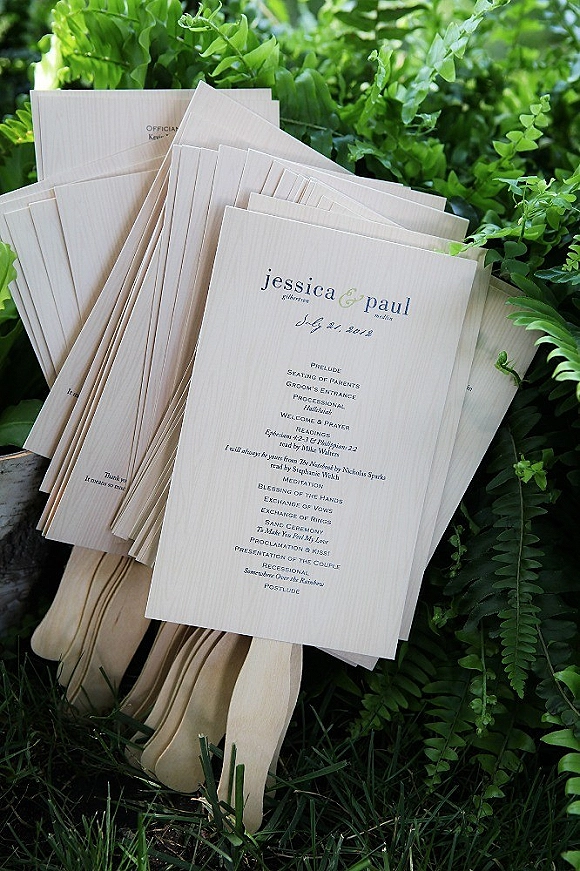 OFFICIAN
jessica & paul
gilbertson medlin
July 21, 2012
PRELUDE
SEATING OF PARENTS
GROOM'S ENTRANCE
PROCESSIONAL
Hallelujah
WELCOME & PRAYER
READINGS
Ephesians 4:2-3 & Philippians 2:2
read by Mike Walters
I will always be yours from The Notebook by Nicholas Sparks
read by Stephanie Welch
MEDITATION
BLESSING OF THE HANDS
EXCHANGE OF VOWS
EXCHANGE OF RINGS
SAND CEREMONY
To Make You Feel My Love
PROCLAMATION & KISS!
PRESENTATION OF THE COUPLE
RECESSIONAL
Somewhere Over the Rainbow
POSTLUDE
Thank you
It means so much